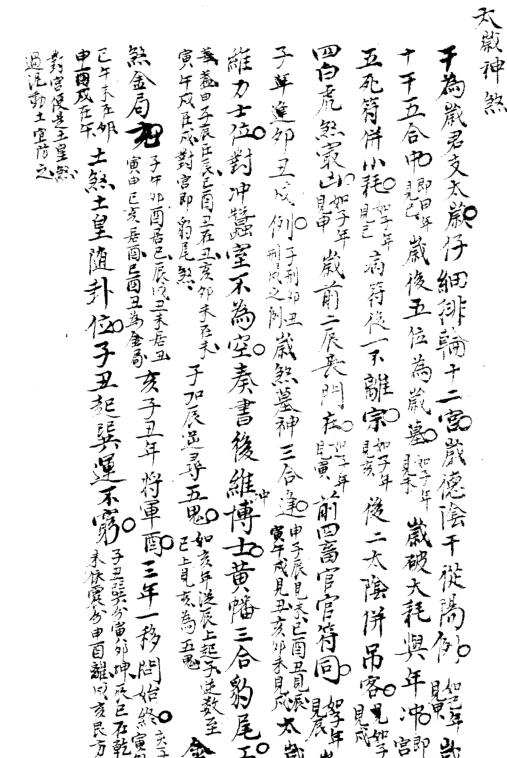 太歲神煞
干為歲君支太歲仔細排輪十二宮歲德陰干從陽例如己年見甲歲
十干五合中即甲年見己歲後五位為歲墓如子年見未歲破大耗與年冲即宮
五死符併小耗如子年見巳病符後一不離宗如子年見亥後二太陰併吊客如子年見戌
四白虎煞最凶如子年見申歲前二辰喪門在如子年見寅前四畜官官符同如子年見辰
子年進卯丑戌例子刑卯丑刑戌之例歲煞墓神三合逢申子辰見未巳酉丑見辰寅午戌見丑亥卯未見戌太歲
維力士位對冲蠶室不為空奏書後維冲博士黃幡三合豹尾
黃幡申子辰在辰巳酉丑在丑亥卯未在未寅午戌在戌對宮即豹尾煞子加辰逆尋五鬼如亥年逆辰上起子逆數至巳上見亥為五鬼金
煞金局子午卯酉居巳辰戌丑未居丑寅申巳亥居酉巳酉丑為金局亥子丑年將軍酉三年一移問始終
巳午未在卯申酉戌在午土煞土皇随卦位子丑起巽運不窮子丑巽分寅卯坤辰巳在乾
對宮便是土皇煞
過泥動土宜防之